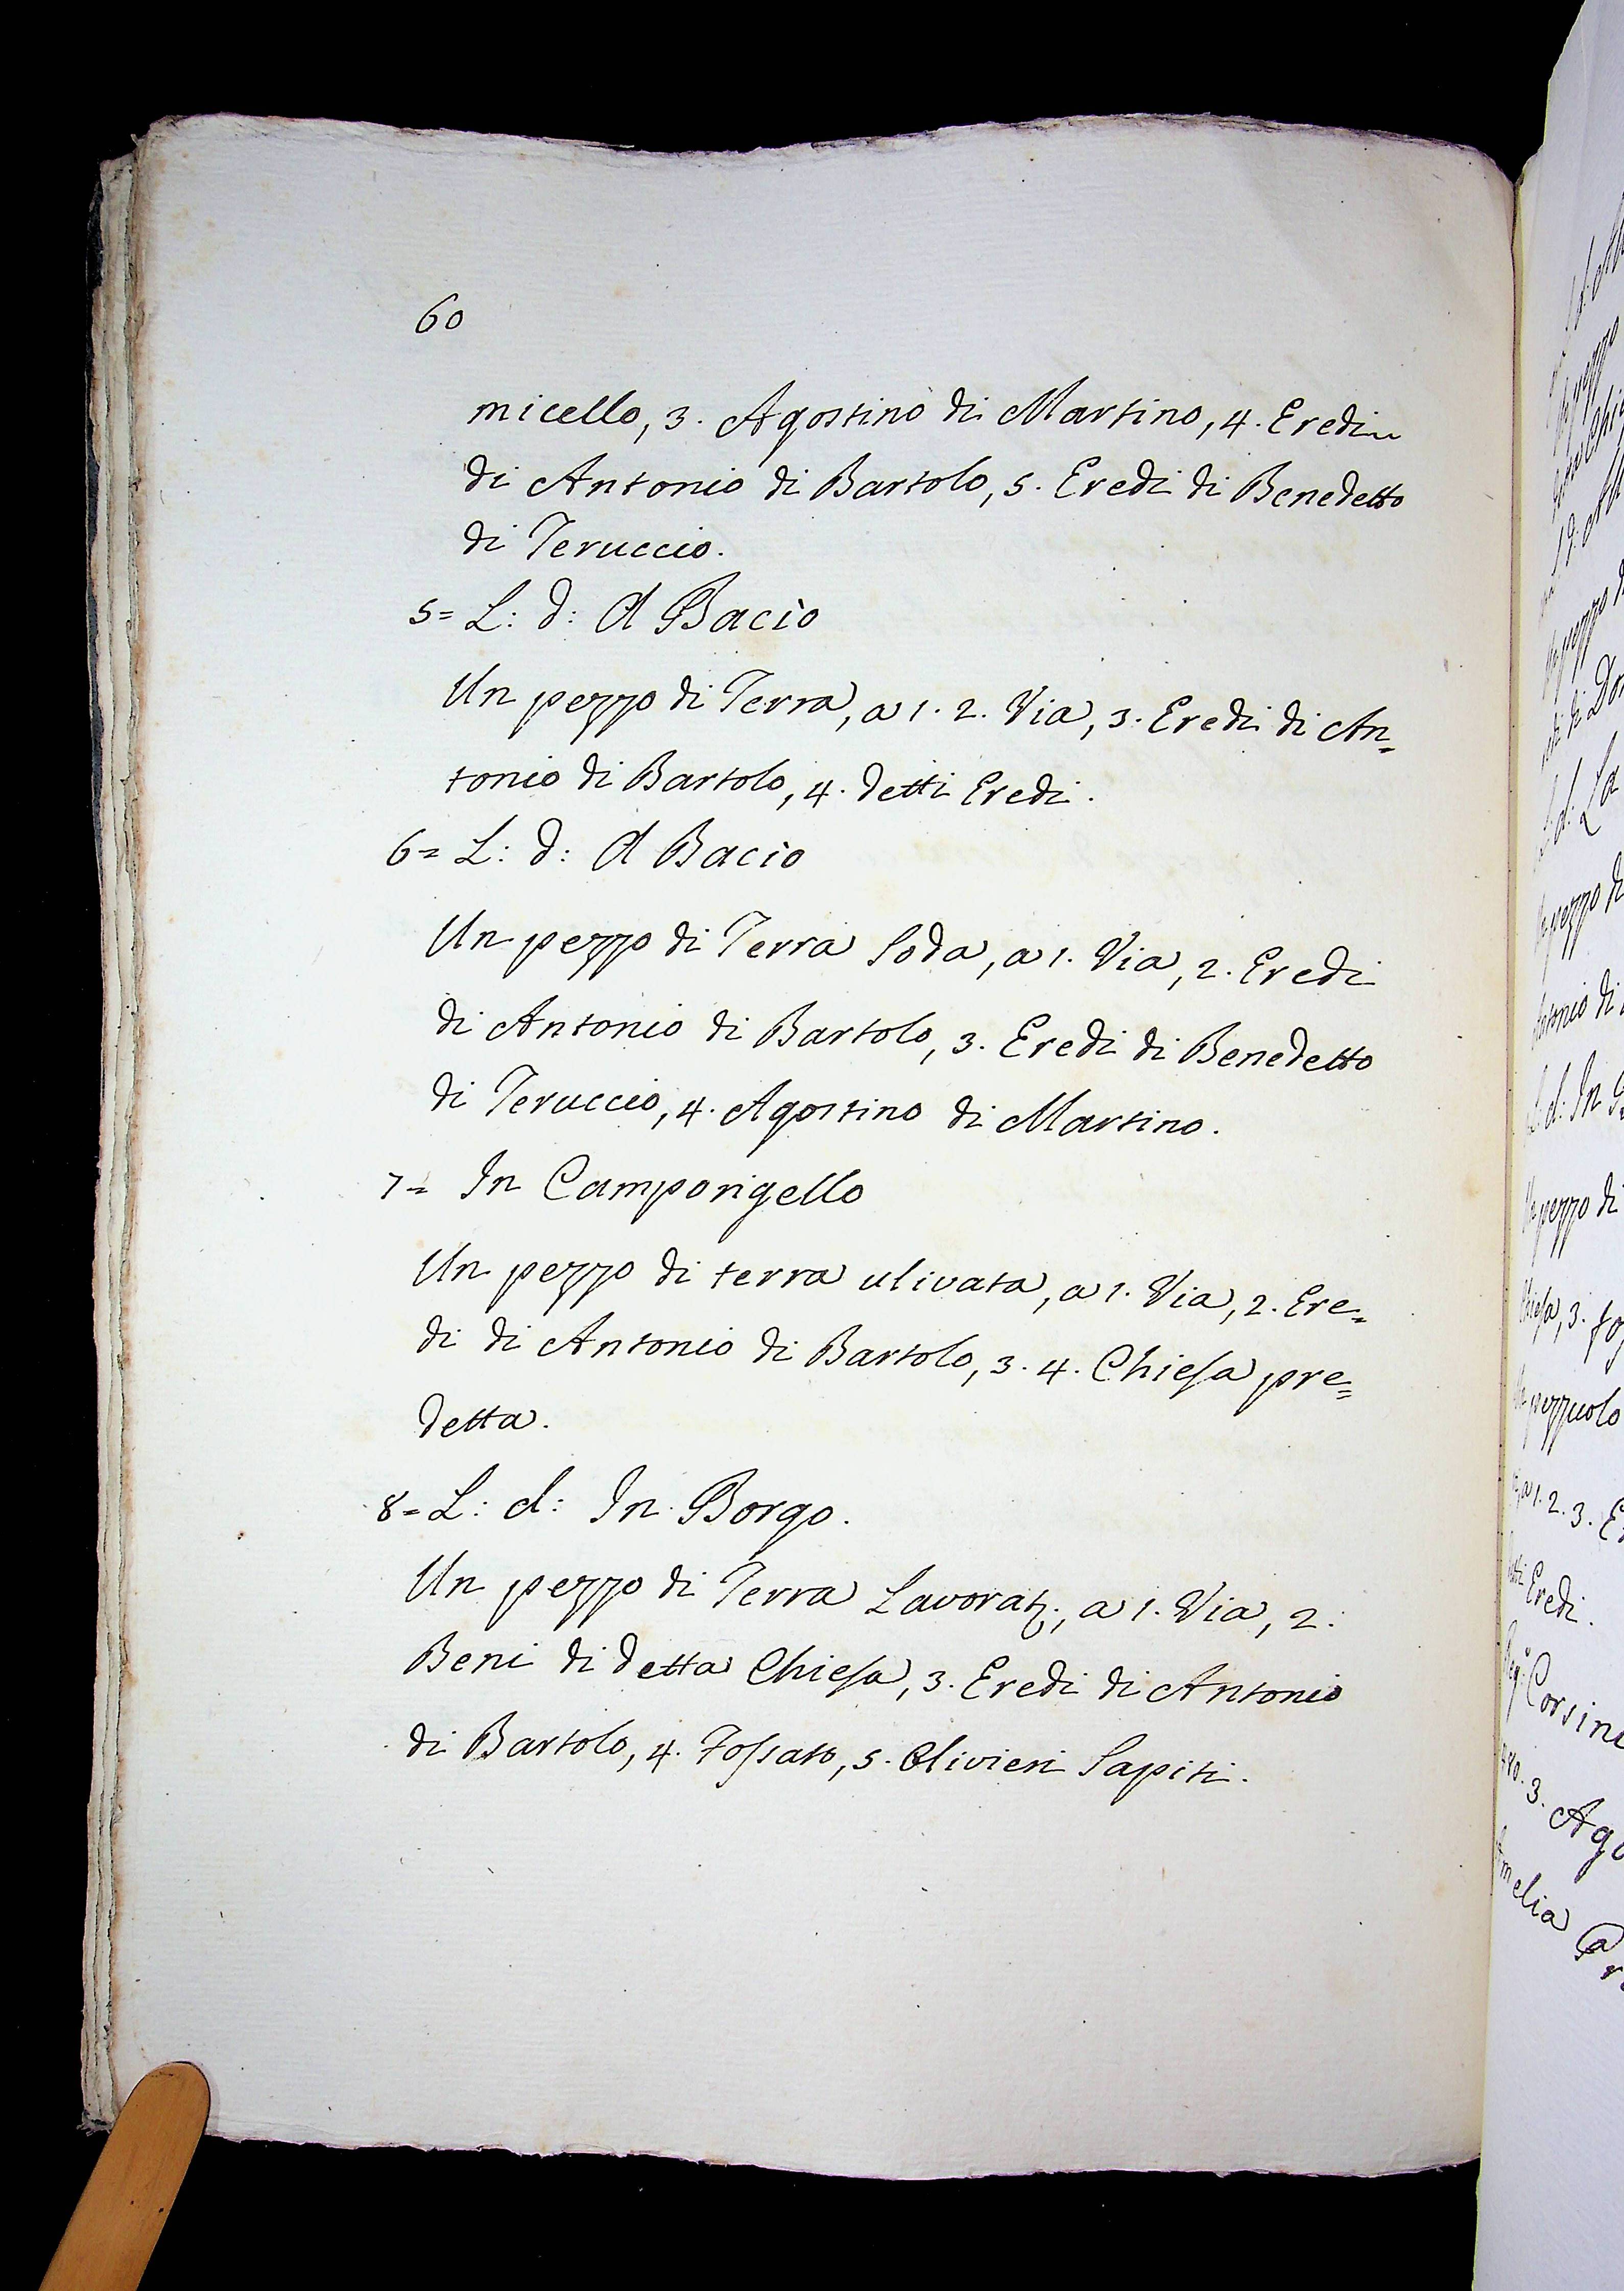 60
micello, 3. Agostino di Martino, 4. Eredi
di Antonio di Bartolo, 5. Eredi di Benedetto
di Teruccio.
5= L: d: A Bacìo
Un pezzo di Terra, a 1. 2. Via, 3. Eredi di An=
tonio di Bartolo, 4. detti Eredi.
6= L: d: A Bacìo
Un pezzo di Terra Soda, a 1. Via, 2. Eredi
di Antonio di Bartolo, 3. Eredi di Benedetto
di Teruccio, 4. Agostino di Martino.
7= In Camporigello
Un pezzo di terra ulivata, a 1. Via, 2. Ere=
di di Antonio di Bartolo, 3. 4. Chiesa pre=
detta.
8= L: d: In Borgo.
Un pezzo di Terra Lavorat:, a 1. Via, 2.
Beni di detta Chiesa, 3. Eredi di Antonio
di Bartolo, 4. Fossato, 5. Olivieri Sapiti.
pezzo
pezzo di
di Do
d: La
pezzo di
Antonio di
d: In
Un pezzo di
Chiesa, 3. fo
pezzuolo
a 1. 2. 3. E
detti Eredi.
Corsini
3. Ago
Amelia